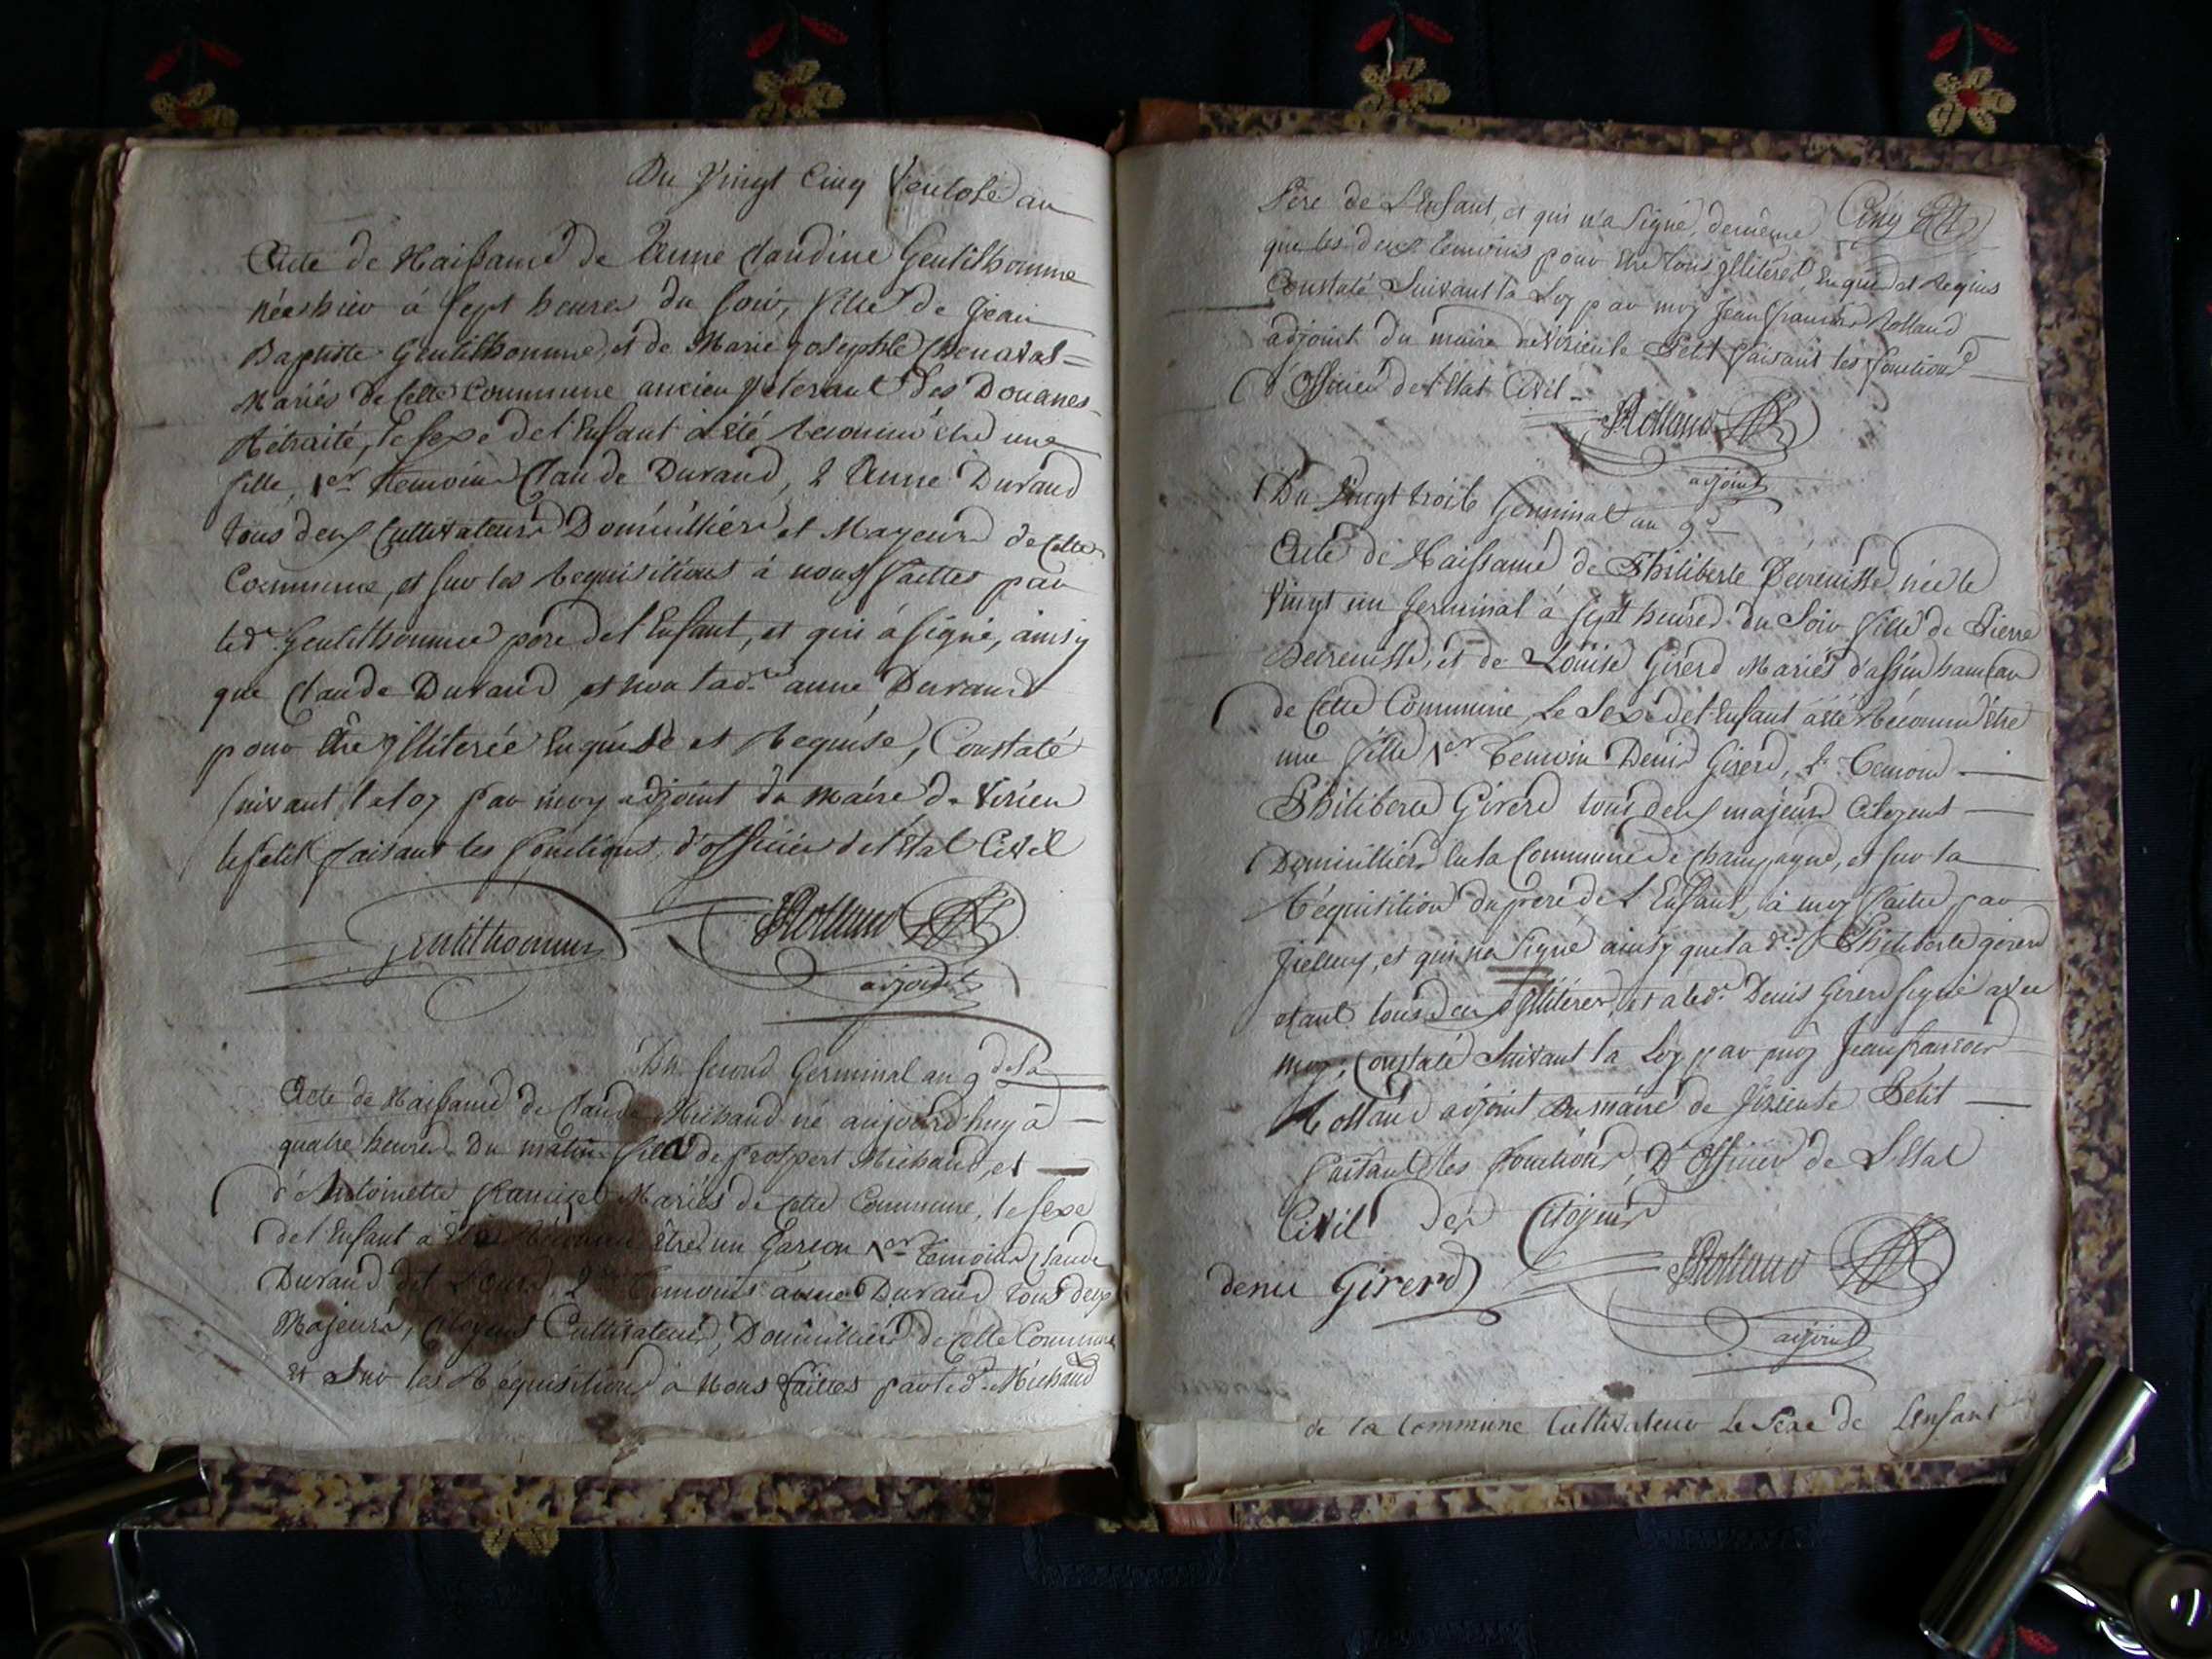 Du Vingt Cinq Ventose an
Acte de Naissance de Anne Claudine Gentilhomme
née hier à sept heures du soir, fille de Jean
Baptiste Gentilhomme, et de Marie Josephte Chenaval =
Mariés de cette Commune ancien veterant des Douanes
Rétraité, le sexe de l'Enfant a été reconnu être une
fille, 1er Temoin Claude Durand, 2 Anne Durand
tous deux Cultivateurs Domicilliers et Majeurs de cette
Commune, et sur les requisitions à nous faittes par
led. Gentilhomme pere de l'Enfant, et qui a signé, ainsy
que Claude Durand et non lad.te anne Durand
pour être illiterée Enquise et Requise, Constaté
suivant la loy par moy adjoint du Maire de Virieu
le petit faisant les fonctions d'officier de l'Etat Civil
gentilhomme JRolland
adjoint
Du second Germinal an 9 de la
Acte de Naissance de Claude Michaud né aujourd'huy à
quatre heures du matin fils de Prospert Michaud, et
d'Antoinette Mariés de cette Commune, le sexe
de l'Enfant a été Reconnu Etre un Garson 1er Temoin Claude
Durand dit 2 Temoins anne Durand tous deux
Majeurs, citoyens Cultivateurs, Domicilliers de cette Commune
et sur les Réquisitions à Nous faittes par led. Michaud
Pere de L'Enfant, et qui n'a signé, demême Cinq
que les deux temoins pour etre tous illiteres, Enquis et Requis
Constaté Suivant la Loy par moy Jean françois Rolland
adjoint du maire de Virieu le Petit faisant les fonctions
d'Officier de l'Etat Civil
JRolland
adjoint
Du Vingt trois Germinal an 9e
Acte de Naissance de Philiberte Decreuisse née le
Vingt un Germinal à sept heures du Soir fille de Pierre
Decreuisse, et de Loüise Girerd Mariés d'assin hameau
de Cette Commune, Le Sexe de l'Enfant a été Reconnu être
une fille 1er Temoin Denis Girerd, 2 Temoins
Philiberte Girerd tous deux majeurs Citoyens
Domicilliers en la Commune de Champagne, et sur la
Réquisition du pere de L'Enfant, à moy faitte par
Jielluy, et qui na Signé ainsy que la d.e Philiberte girerd
etant tous deux illiteres, et a led. Denis Girerd signé avec
moy, Constaté Suivant la Loy par moy Jean françois
Rolland adjoint du maire de Virieu le Petit
faisant les fonctions D'Officier de L'Etat
Civil des Citoyens
denis Girerd JRolland
adjoint
de la Commune Cultivateur Le Pere de L'Enfant